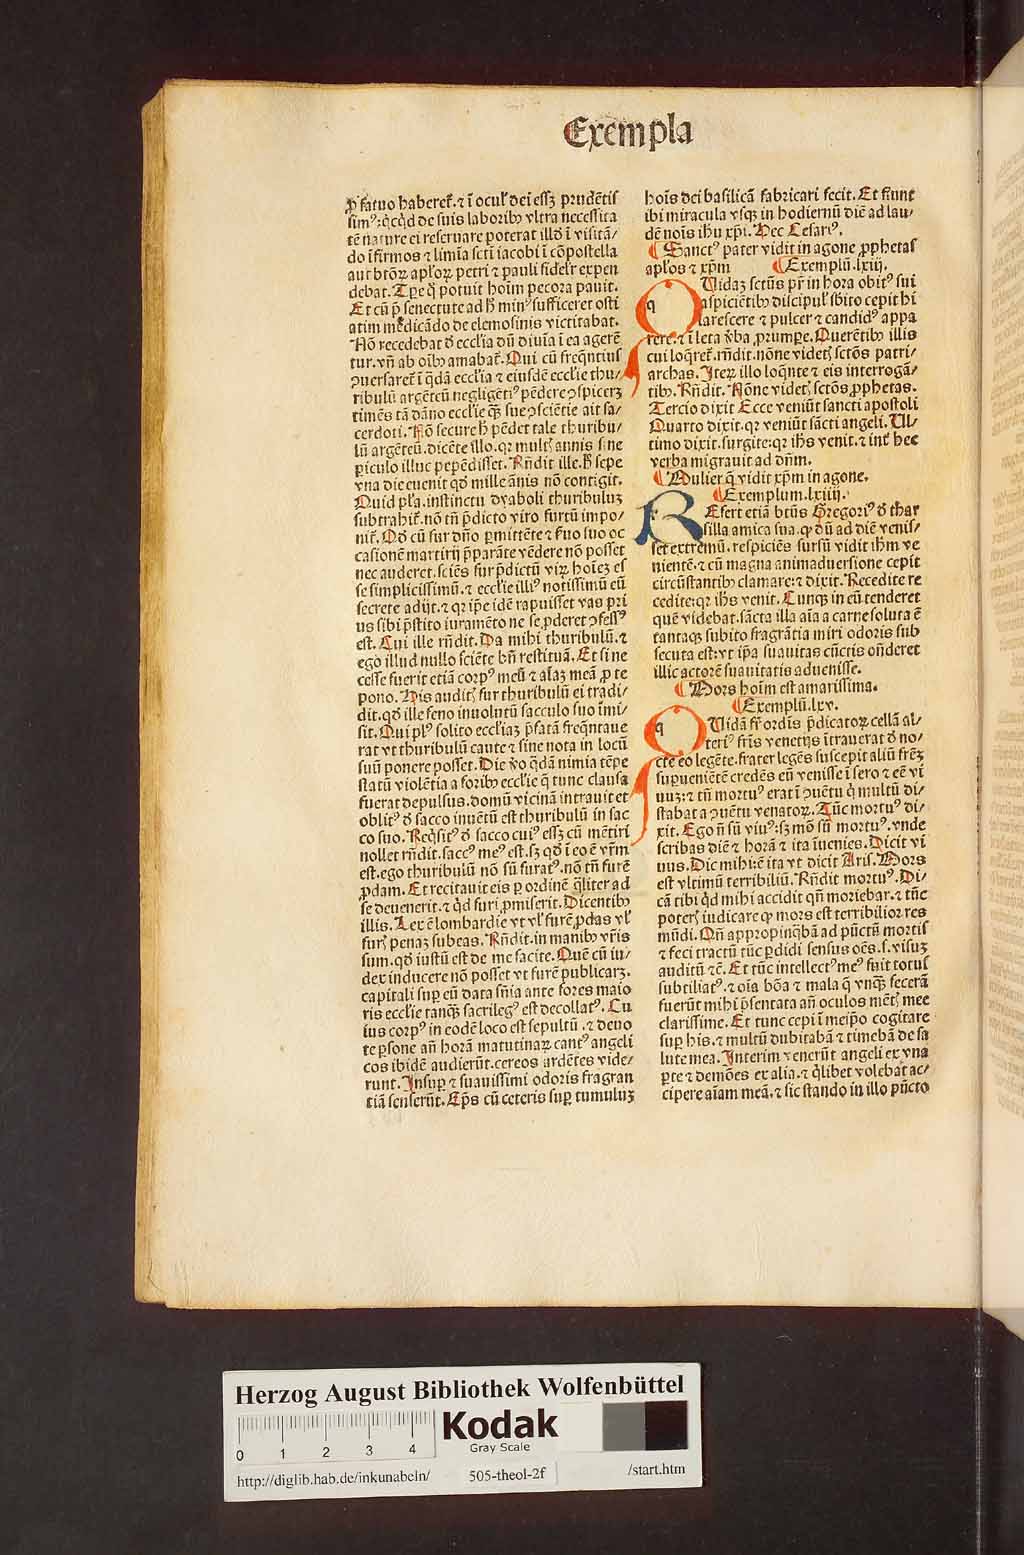 Exempla
ꝓ fatuo haberet᷑. ⁊ ī ocul᷑ dei eſſꝫ prudētiſ
ſimꝰ: q̇cq̇d de ſuis laboribꝰ vltra neceſſita
tē nature ei reſeruare poterat illd̄ ī viſitā/
do īfirmos ⁊ limīa ſcti iacobi ī cōpoſtella
aut btōꝝ apl̄oꝝ petri ⁊ pauli fidelr̄ expen
debat. Tꝑe q̄ potuit hoīm pecora pauit.
Et cū p̄ ſenectute ad h̄ minꝰ ſufficeret oſti
atim mēdicādo de elemoſinis victitabat.
Nō recedebat d̄ eccl̄ia dū diuīa ī ea agerē
tur. vn̄ ab oībꝰ amabat᷑. Qui cū freq̄ntius
ꝯuerſaret᷑ ī q̄dā eccl̄ia ⁊ eiuſdē eccl̄ie thu/
ribulū argētcū negligētiꝰ pēdere ꝯſpiceꝫ
timēs tā dāno eccl̄ie q̄ꝫ ſue ꝯſciētie ait ſa/
cerdoti. Nō ſecure h̄ pēdet tale thuribu/
lū argēteū. dicēte illo. qꝛ mult᷑ annis ſine
ꝑiculo illuc pepēdiſſet. Rn̄dit ille. h̄ ſepe
vna die euenit qd̄ mille ānis nō contigit.
Quid pl̄a. inſtinctu dyaboli thuribuluꝫ
ſubtrahit᷑. nō tn̄ p̄dicto viro furtū impo/
nit᷑. Qd̄ cū fur dn̄o ꝑmittēte ⁊ ẜuo ſuo oc
caſionē martirij p̄parāte vēdere nō poſſet
nec auderet. ſciēs fur p̄dictū viꝝ hoīez eſ
ſe ſimpliciſſimū. ⁊ eccl̄ie illiꝰ notiſſimū eū
ſecrete adijt. ⁊ qꝛ ip̄e idē rapuiſſet vas pri
us ſibi p̄ſtito iuramēto ne ſe ꝓderet ꝯfeſſꝰ
eſt. Cui ille rn̄dit. Da mihi thuribulū. ⁊
ego illud nullo ſciēte bn̄ reſtituā. Et ſi ne
ceſſe fuerit etiā corpꝰ meū ⁊ aīaz meā ꝓ te
pono. His audit᷑ fur thuribulū ei tradi/
dit. qd̄ ille feno inuolutū ſacculo ſuo īmi/
ſit. Qui plꝰ ſolito eccl̄iaꝫ p̄fatā freq̄ntaue
rat vt thuribulū caute ⁊ ſine nota in locū
ſuū ponere poſſet. Die v̄o q̄dā nimia tēpe
ſtatū violētia a foribꝰ eccl̄ie q̄ tunc clauſa
fuerat depulſus. domū vicinā intrauit et
oblitꝰ d̄ ſacco inuētū eſt thuribulū in ſac
co ſuo. Req̇ſitꝰ d̄ ſacco cuiꝰ eſſꝫ cū mētiri
nollet rn̄dit. ſaccꝰ meꝰ eſt. ſꝫ qd̄ ī eo ē vr̄m
eſt. ego thuribulū nō ſū furatꝰ. nō tn̄ furē
ꝓdam. Et recitauit eis ꝑ ordinē q̄liter ad
ſe deuenerit. ⁊ q̇d furi ꝓmiſerit. Dicentibꝰ
illis. Lex ē lombardie vt vl̄ furē ꝓdas vl̄
fur᷑ penaꝫ ſubeas. Rn̄dit. in manibꝰ vr̄is
ſum. qd̄ iuſtū eſt de me facite. Quē cū iu/
dex inducere nō poſſet vt furē publicarꝫ.
capitali ſuꝑ eū data ſn̄ia ante fores maio
ris eccl̄ie tanq̄ꝫ ſacrilegꝰ eſt decollatꝰ. Cu
ius corpꝰ in eodē loco eſt ſepultū. ⁊ deuo
te ꝑſone an̄ horā matutinaꝝ cantꝰ angeli
cos ibidē audierūt. cereos ardētes vide/
runt. Inſuꝑ ⁊ ſuauiſſimi odoris fragran
tiā ſenſerūt. Ep̄s cū ceteris ſuꝑ tumuluꝫ
hoīs dei baſilicā fabricari fecit. Et fiunt
ibi miracula vſqꝫ in hodiernū diē ad lau/
dē noīs ihū xp̄i. Hec Ceſariꝰ.
¶ Sanctꝰ pater vidit in agone ꝓphetas
apl̄os ⁊ xp̄m ¶ Exemplū. lxiij.
QUidaꝫ ſctūs pr̄ in hora obitꝰ ſui
aſpiciētibꝰ diſcipul᷑ ſbito cepit hi
lareſcere ⁊ pulcer ⁊ candidꝰ appa
rere. ⁊ ī leta v̄ba ꝓrumpe. Querētibꝰ illis
cui loq̄ret᷑. rn̄dit. nōne videt᷑ ſctōs patri/
archas. Iteꝝ illo loq̄nte ⁊ eis interrogā/
tibꝰ. Rn̄dit. Nōne videt᷑ ſctōs ꝓphetas.
Tercio dixit Ecce veniūt ſancti apoſtoli
Quarto dixit. qꝛ veniūt ſācti angeli. Ul/
timo dixit. ſurgite: qꝛ ih̄s venit. ⁊ int᷑ hec
verba migrauit ad dn̄m.
¶ Mulier q̄ vidit xp̄m in agone.
¶ Exemplum. lxiiij.
REfert etiā btūs Gregoriꝰ d̄ thar
ſilla amica ſua. qꝙ dū ad diē veniſ/
ſet extremū. reſpiciēs ſurſū vidit ihm̄ ve
nientē. ⁊ cū magna animaduerſione cepit
circūſtantibꝰ clamare: ⁊ dixit. Recedite re
cedite: qꝛ ih̄s venit. Cunqꝫ in eū tenderet
quē videbat. ſācta illa aīa a carne ſoluta ē
tantaqꝫ ſubito fragrātia miri odoris ſub
ſecuta eſt: vt ip̄a ſuauitas cūctis on̄deret
illic actorē ſuauitatis adueniſſe.
¶ Mors hoīm eſt amariſſima.
¶ Exemplū. lxv.
QUidā fr̄ ordis p̄dicatoꝝ cellā al/
teriꝰ fr̄is venetijs ītrauerat d̄ no/
cte eo legēte. frater legēs ſuſcepit aliū fr̄eꝫ
ſuꝑuenientē credēs eū veniſſe ī ſero ⁊ eē vi
uuꝫ: ⁊ tn̄ mortuꝰ erat ī ꝯuētu q̄ multū di/
ſtabat a ꝯuētu venatoꝝ. Tūc mortuꝰ di/
xit. Ego n̄ ſū viuꝰ: ſꝫ mō ſū mortuꝰ. vnde
ſcribas diē ⁊ horā ⁊ ita īuenies. Dicit vi
uus. Dic mihi: ē ita vt dicit Ariſ. Mors
eſt vltimū terribiliū. Rn̄dit mortuꝰ. Di/
cā tibi q̇d mihi accidit qn̄ moriebar. ⁊ tūc
poter᷑ iudicare qꝙ mors eſt terribilior res
mūdi. Qn̄ appropinq̄bā ad pūctū mortis
⁊ feci tractū tūc ꝑdidi ſenſus oēs. ſ. viſuꝫ
auditū ⁊c̄. Et tūc intellectꝰ meꝰ fuit totus
ſubtiliatꝰ. ⁊ oīa bōa ⁊ mala q̄ vnqꝫ fecerā
fuerūt mihi p̄ſentata an̄ oculos mēt᷑ mee
clariſſime. Et tunc cepi ī meip̄o cogitare
ſuꝑ his. ⁊ multū dubitabā ⁊ timebā de ſa
lute mea. Interim venerūt angeli ex vna
ꝑte ⁊ demōes ex alia. ⁊ q̇libet volebat ac/
cipere aīam meā. ⁊ ſic ſtando in illo pūcto
Herzog August Bibliothek Wolfenbüttel
Kodak
Gray Scale
0 1 2 3 4
http://diglib.hab.de/inkunabeln/ 505-theol-2f /start.htm